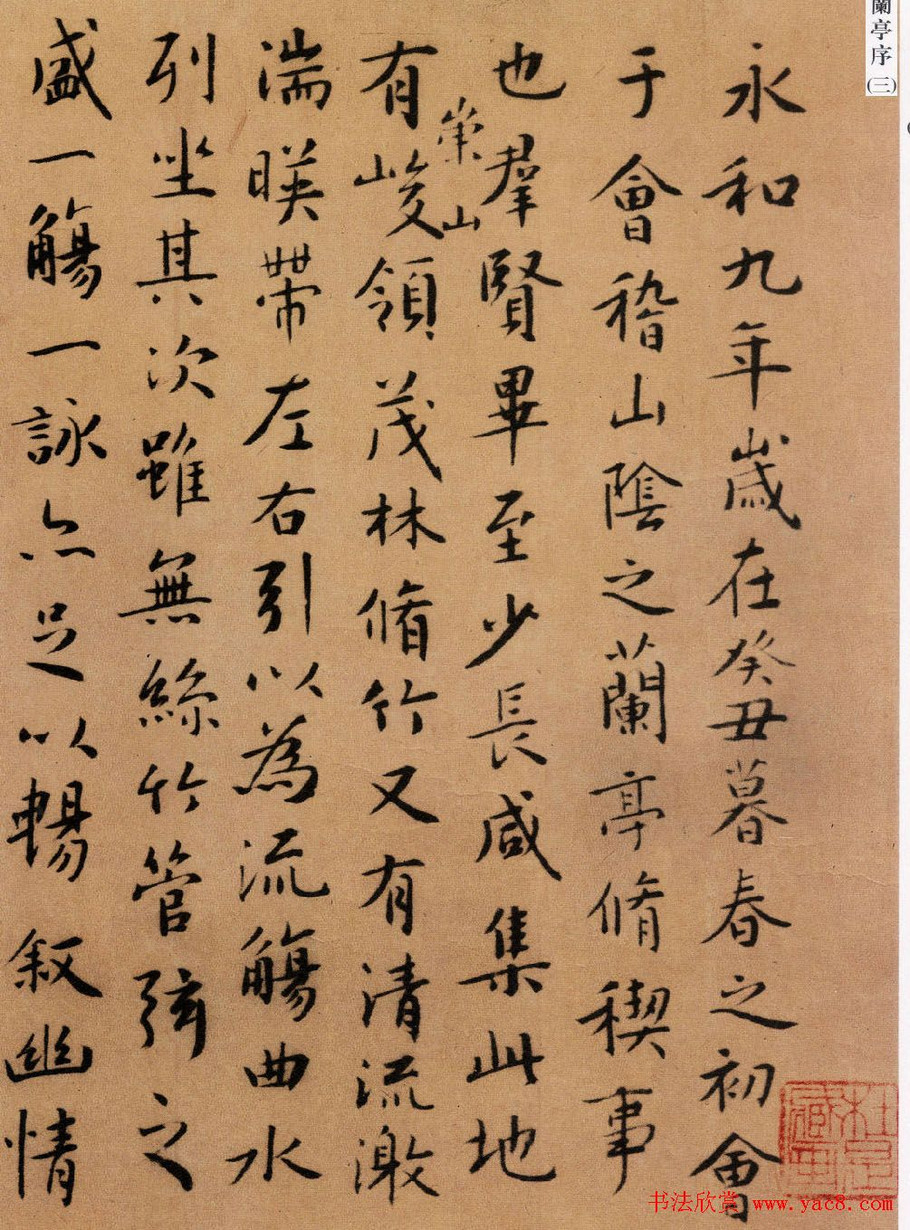 蘭亭序(三)
永和九年歲在癸丑暮春之初會
于會稽山陰之蘭亭脩稧事
也羣賢畢至少長咸集此地
崇山
有峻領茂林脩竹又有清流激
湍暎帶左右引以為流觴曲水
列坐其次雖無絲竹管弦之
盛一觴一詠亦足以暢敘幽情
书法欣赏 www.yac8.com